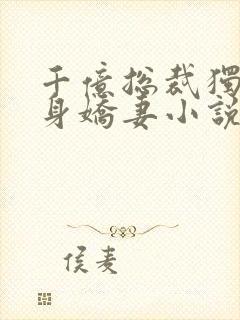 千億总裁獨
身嬌妻小説
侯麦